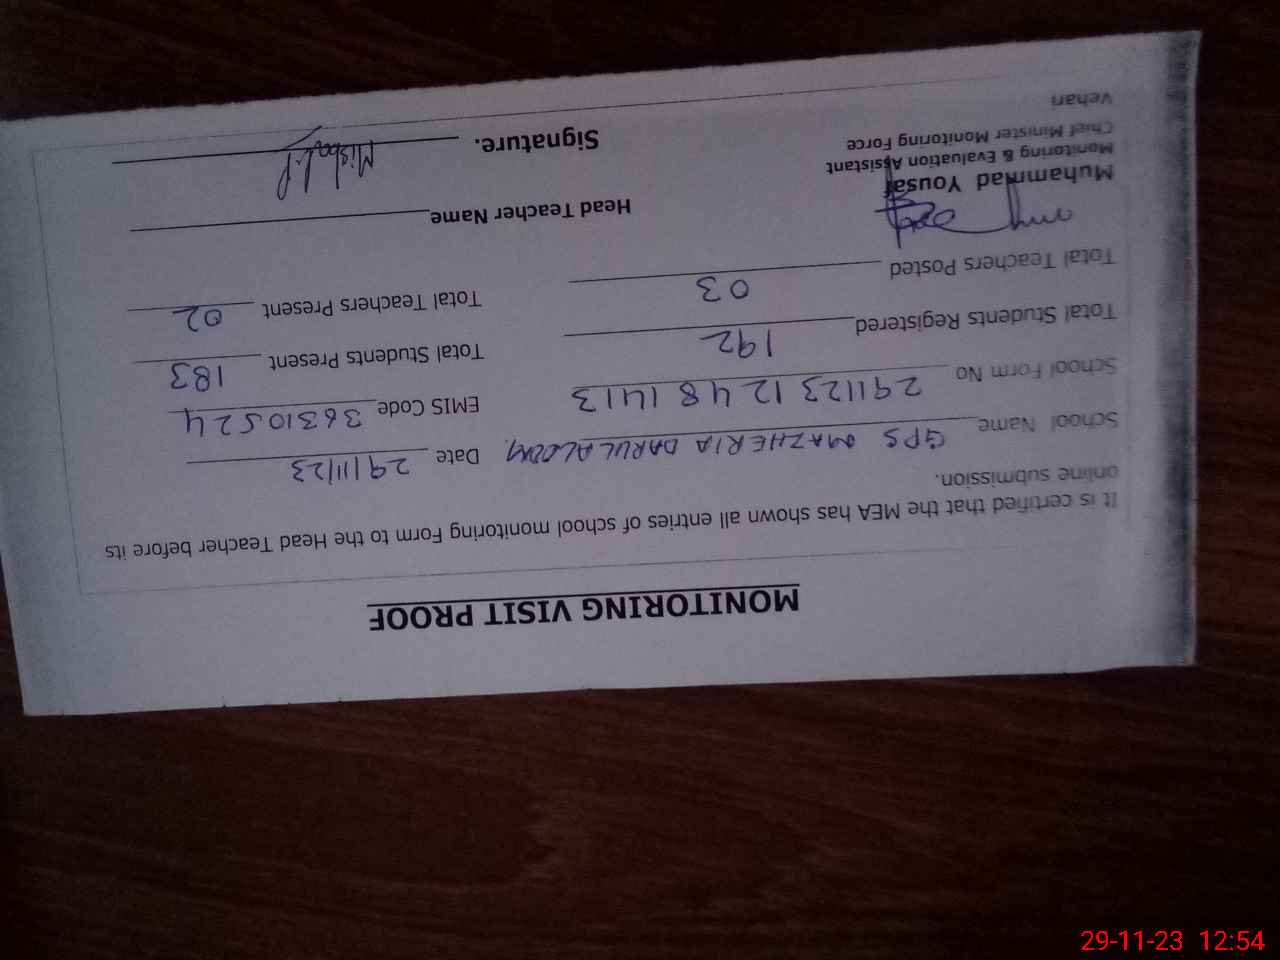 MONITORING VISIT PROOF
It is certified that the MEA has shown all entries of school monitoring Form to the Head Teacher before its
online submission.
School Name GPS MAZHERIA DARUL ALOOM, Date 29/11/23
School Form No 291123 12 48 1413 EMIS Code 36310524
Total Students Registered 192 Total Students Present 183
Total Teachers Posted 03 Total Teachers Present 02
Head Teacher Name
Muhammad Yousaf
Monitoring & Evaluation Assistant
Signature.
Chief Minister Monitoring Force
Vehari
29-11-23 12:54